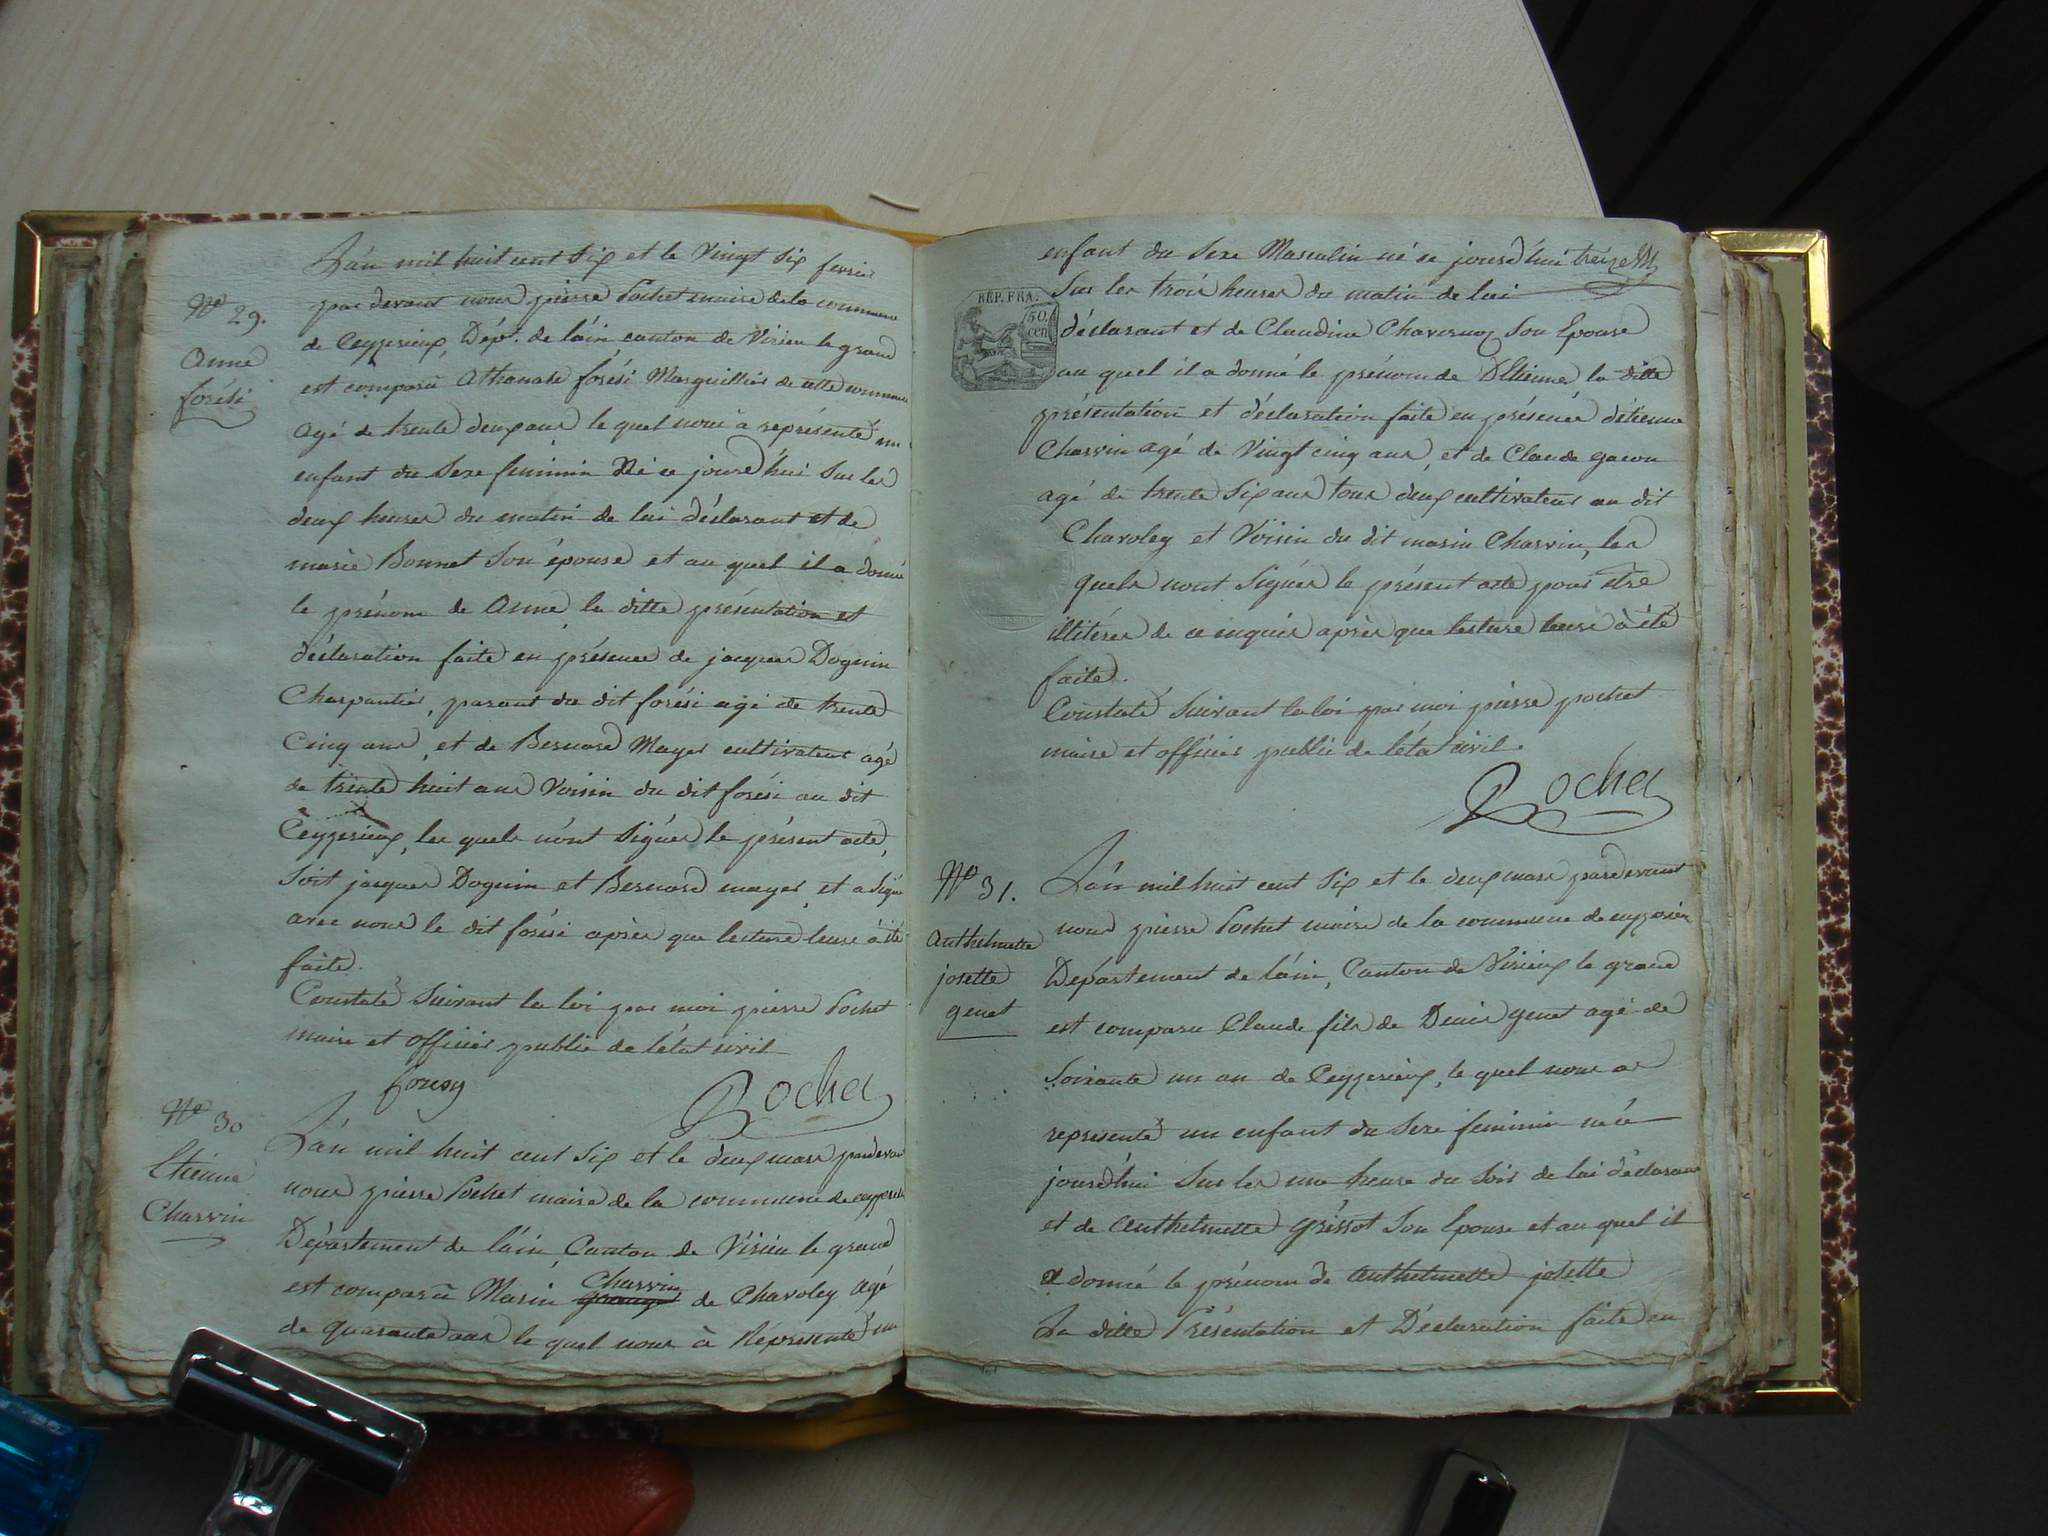 L'an mil huit cent six et le vingt six fevrier
N° 29.
Anne
forési
par devant nous pierre Pochet maire de la commune
de Ceyzerieux, Dépt. de l'ain canton de Virieu le grand
est comparû Athanase forési Marguillier de cette commune
agé de trente deux ans le quel nous à représenté un
enfant du sexe feminin Né ce jourd'hui sur les
deux heures du matin de lui déclarant et de
marie Bonnet son épouse et au quel il a donné
le prénom de Anne, la ditte présentation et
déclaration faite en présence de jacques Doguin
Charpantier, parant du dit forési agé de trente
Cinq ans, et de Bernard Mayer cultivateur agé
de trente huit ans Voisin du dit forési au dit
Ceyzerieux, les quels n'ont signés le présent acte,
soit jacques Doguin et Bernard mayer, et a signé
avec nous le dit forési après que lecture leur à été
faite.
Constaté suivant la loi par moi pierre Pochet
maire et officier public de l'état civil
foresy Pochet
N° 30
Etiénne
Charvin
L'an mil huit cent six et le deux mars pardevant
nous pierre Pochet maire de la commune de ceyzerieu
Département de l'ain, Canton de Virieu le grand
est comparû Marin Charvin de Charoley agé
de quarante ans le quel nous à Réprésenté un
enfant du sexe Masculin né ce jourd'hui
sur les trois heures du matin de lui
REP. FRA.
50.
cen
déclarant et de Claudine Chavernoz son Epouse
au quel il a donné le prénom de Etienne la ditte
présentation et déclaration faite en présence d'étienne
Charvin agé de Vingt cinq ans, et de Claude gacon
agé de trente six ans tous deux cultivateurs au dit
Charoley et Voisin du dit marin Charvin, les
quels nont signés le présent acte pour être
illitérés de ce enquis après que lecture leur à été
faite.
Constaté suivant la loi par moi pierre pochet
maire et officier public de l'état civil.
Pochet
N° 31.
anthelmette
josette
genet
L'an mil huit cent six et le deux mars pardevant
nous pierre Pochet maire de la commune de ceyzerieu
Département de l'ain, Canton de Virieux le grand
est comparu Claude fils de Denis genet agé de
soixante un an de Ceyzerieux, le quel nous a
représenté un enfant du sexe feminin né ce
jourd'hui sur les une heure du soir de lui déclarant
et de anthelmette grissot son Epouse et au quel il
a donné le prénom de anthelmette josette
La ditte Présentation et Déclaration faite en